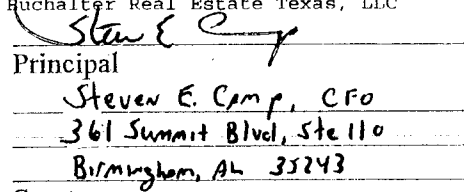 Buchalter Real Estate Texas, LLC
Steven E Camp
Principal
Steven E. Camp, CFO
361 Summit Blvd, Ste 110
Birmingham, AL 35243